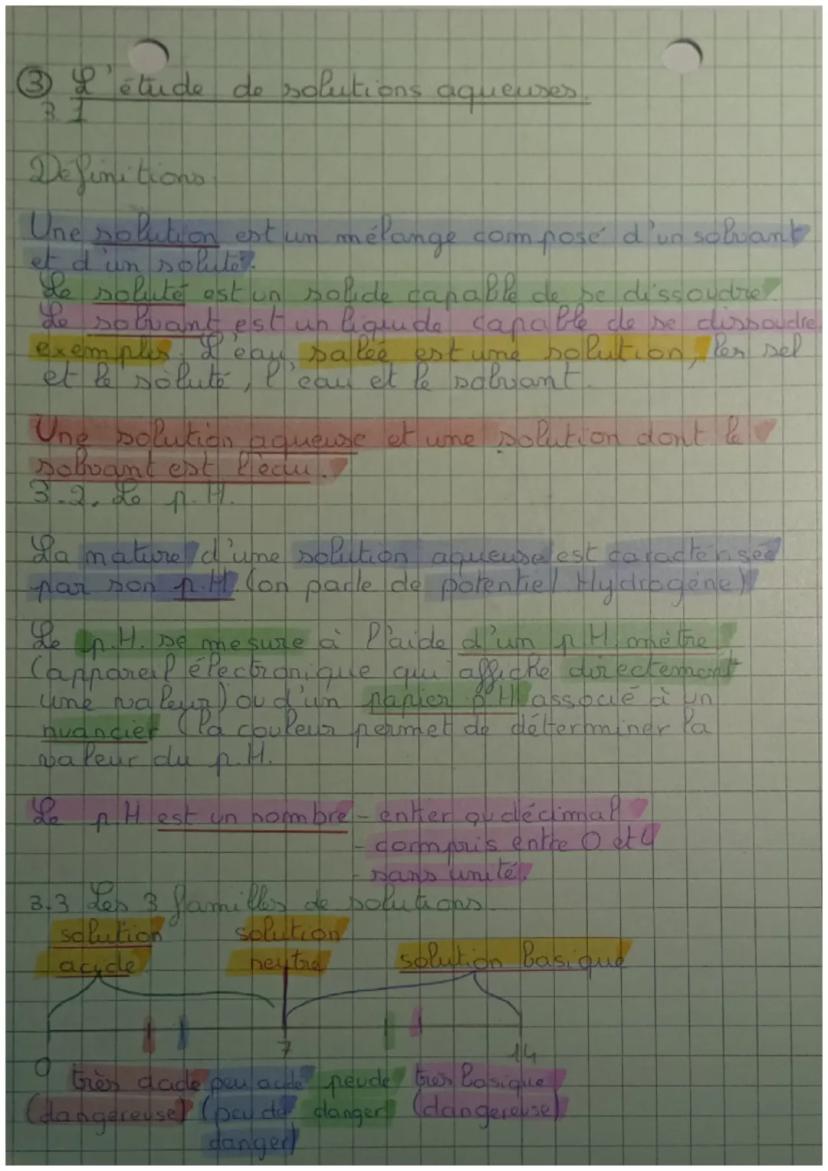 ③ L'étude de solutions aqueuses.
3.1
Définitions
Une solution est un mélange composé d'un solvant
et d'un soluté.
Le soluté est un solide capable de se dissoudre.
Le solvant est un liquide capable de se dissoudre
exemples. L'eau salée est une solution, les sel
et le soluté, l'eau et le solvant.
Une solution aqueuse et une solution dont le
solvant est l'eau.
3.2. Le p.H.
La nature d'une solution aqueuse est caractérisée
par son p.H. (on parle de potentiel Hydrogène)
Le p.H. se mesure à l'aide d'un pH mètre
(appareil électronique qui affiche directement
une valeur) ou d'un papier pH associé à un
nuancier (la couleur permet de déterminer la
valeur du p.H.
Le pH est un nombre - entier ou décimal
- compris entre 0 et 4
- sans unité.
3.3 Les 3 familles de solutions
solution solution
acide neutre solution basique
0 7 14
très acide peu acide peu de très basique
(dangereuse) (peu de danger (dangereuse)
danger)